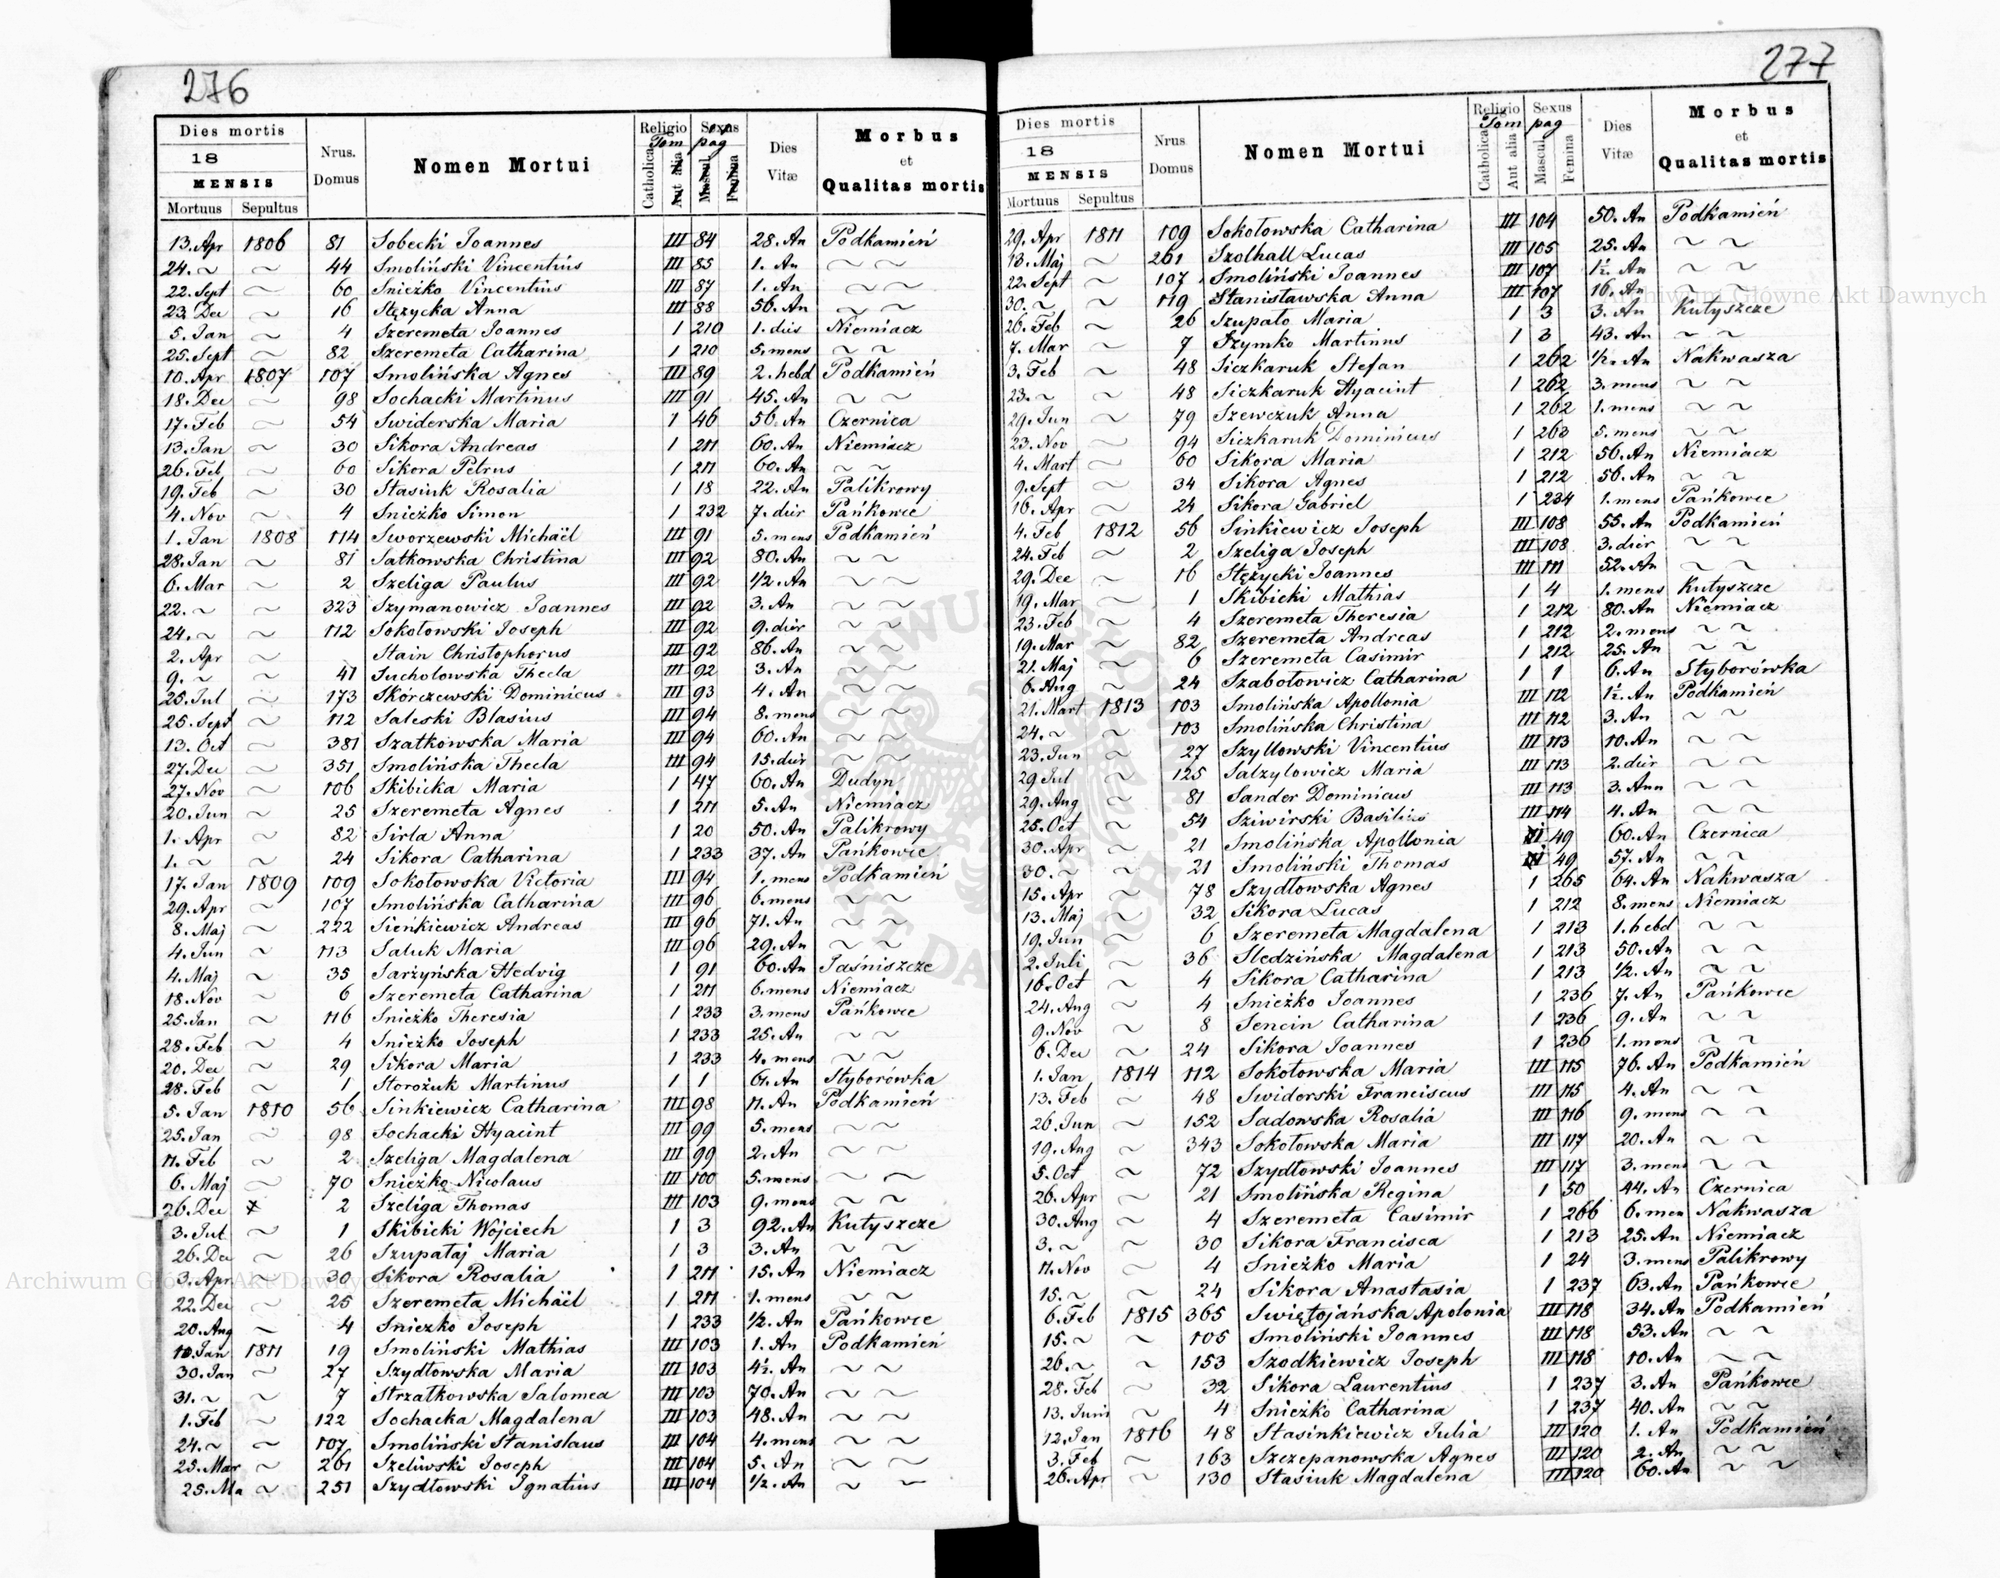 276
Dies mortis Nrus. Domus Nomen Mortui Religio Tom Sexus pag Dies Vitæ Morbus et Qualitas mortis
18
MENSIS
Mortuus Sepultus Catholica Aut alia Mascul Femina
13. Apr 1806 81 Sobecki Joannes III 84 28. An Podkamień
24. ~ ~ 44 Smoliński Vincentius III 85 1. An ~ ~
22. Sept ~ 60 Sniezko Vincentius III 87 1. An ~ ~
23. Dec ~ 16 Stęzycka Anna III 88 56. An ~ ~
5. Jan ~ 4 Szeremeta Joannes 1 210 1. dies Niemiacz
25. Sept ~ 82 Szeremeta Catharina 1 210 5. mens ~ ~
10. Apr 1807 107 Smolińska Agnes III 89 2. hebd Podkamień
18. Dec ~ 98 Sochacki Martinus III 91 45. An ~ ~
17. Feb ~ 54 Swiderska Maria 1 46 56. An Czernica
13. Jan ~ 30 Sikora Andreas 1 211 60. An Niemiacz
26. Feb ~ 60 Sikora Petrus 1 211 60. An ~ ~
19. Feb ~ 30 Stasiuk Rosalia 1 18 22. An Palikrowy
4. Nov ~ 4 Sniezko Simon 1 232 7. dier Pańkowce
1. Jan 1808 114 Sworzewski Michaël III 91 5. mens Podkamień
28. Jan ~ 81 Satkowska Christina III 92 80. An ~ ~
6. Mar ~ 2 Szeliga Paulus III 92 1/2. An ~ ~
22. ~ ~ 323 Szymanowicz Joannes III 92 3. An ~ ~
24. ~ ~ 112 Sokołowski Joseph III 92 9. dier ~ ~
2. Apr ~ Stain Christophorus III 92 86. An ~ ~
9. ~ ~ 41 Sucholowska Thecla III 92 3. An ~ ~
25. Jul ~ 173 Skórczewski Dominicus III 93 4. An ~ ~
25. Sept ~ 112 Saleski Blasius III 94 8. mens ~ ~
13. Oct ~ 381 Szatkowska Maria III 94 60. An ~ ~
27. Dec ~ 351 Smolińska Thecla III 94 15. dier ~ ~
27. Nov ~ 106 Skibicka Maria 1 47 60. An Dudyn
20. Jun ~ 25 Szeremeta Agnes 1 211 5. An Niemiacz
1. Apr ~ 82 Sirla Anna 1 20 50. An Palikrowy
1. ~ ~ 24 Sikora Catharina 1 233 37. An Pańkowce
17. Jan 1809 109 Sokołowska Victoria III 94 1. mens Podkamień
29. Apr ~ 107 Smolińska Catharina III 96 6. mens ~ ~
8. Maj ~ 222 Sieńkiewicz Andreas III 96 71. An ~ ~
4. Jun ~ 113 Saluk Maria III 96 29. An ~ ~
4. Maj ~ 35 Sarżyńska Hedvig 1 91 60. An Jaśniszcze
18. Nov ~ 6 Szeremeta Catharina 1 211 6. mens Niemiacz
25. Jan ~ 116 Sniezko Theresia 1 233 3. mens Pańkowce
28. Feb ~ 4 Sniezko Joseph 1 233 25. An ~ ~
20. Dec ~ 29 Sikora Maria 1 233 4. mens ~ ~
28. Feb ~ 1 Storożuk Martinus 1 1 61. An Styborówka
5. Jan 1810 56 Sinkiewicz Catharina III 98 11. An Podkamień
25. Jan ~ 98 Sochacki Hyacint III 99 5. mens ~ ~
11. Feb ~ 2 Szeliga Magdalena III 99 2. An ~ ~
6. Maj ~ 70 Sniezko Nicolaus III 100 5. mens ~ ~
26. Dec 2 Szeliga Thomas III 103 9. mens ~ ~
3. Jul ~ 1 Skibicki Wojciech 1 3 92. An Kutyszcze
26. Dec ~ 26 Szupataj Maria 1 3 3. An ~ ~
3. Apr ~ 30 Sikora Rosalia 1 211 15. An Niemiacz
22. Dec ~ 25 Szeremeta Michaël 1 211 1. mens ~ ~
20. Aug ~ 4 Sniezko Joseph 1 233 1/2. An Pańkowce
10. Jan 1811 19 Smoliński Mathias III 103 1. An Podkamień
30. Jan ~ 27 Szydłowska Maria III 103 4 1/2. An ~ ~
31. ~ ~ 7 Strzatkowska Salomea III 103 70. An ~ ~
1. Feb ~ 122 Sochacka Magdalena III 103 48. An ~ ~
24. ~ ~ 107 Smoliński Stanislaus III 104 4. mens ~ ~
25. Mar ~ 261 Szeliwski Joseph III 104 5. An ~ ~
25. Ma ~ 251 Szydłowski Ignatius III 104 1/2. An ~ ~
277
Dies mortis Nrus Domus Nomen Mortui Religio Tom Sexus pag Dies Vitæ Morbus et Qualitas mortis
18
MENSIS
Mortuus Sepultus Catholica Aut alia Mascul Femina
29. Apr 1811 109 Sokołowska Catharina III 104 50. An Podkamień
13. Maj ~ 261 Szolhall Lucas III 105 25. An ~ ~
22. Sept ~ 107 Smoliński Joannes III 107 1 1/2. An ~ ~
30. ~ ~ 119 Stanisławska Anna III 107 16. An ~ ~
26. Feb ~ 26 Szupało Maria 1 3 3. An Kutyszcze
7. Mar ~ 7 Szymko Martinus 1 3 43. An ~ ~
3. Feb ~ 48 Siczkaruk Stefan 1 262 1/2. An Nakwasza
23. ~ ~ 48 Siczkaruk Hyacint 1 262 3. mens ~ ~
29. Jun ~ 79 Szewczuk Anna 1 262 1. mens ~ ~
23. Nov ~ 94 Siczkaruk Dominicus 1 263 5. mens ~ ~
4. Mart ~ 60 Sikora Maria 1 212 56. An Niemiacz
9. Sept ~ 34 Sikora Agnes 1 212 56. An ~ ~
16. Apr ~ 24 Sikora Gabriel 1 234 1. mens Pańkowce
4. Feb 1812 56 Sinkiewicz Joseph III 108 55. An Podkamień
24. Feb ~ 2 Szeliga Joseph III 108 3. dier ~ ~
29. Dec ~ 16 Stężycki Joannes III 111 52. An ~ ~
19. Mar ~ 1 Skibicki Mathias 1 4 1. mens Kutyszcze
23. Feb ~ 4 Szeremeta Theresia 1 212 80. An Niemiacz
19. Mar ~ 82 Szeremeta Andreas 1 212 2. mens ~ ~
21. Maj ~ 6 Szeremeta Casimir 1 212 25. An ~ ~
6. Aug ~ 24 Szabotowicz Catharina 1 1 6. An Styborówka
21. Mart 1813 103 Smolińska Apollonia III 112 1 1/2. An Podkamień
24. ~ ~ 103 Smolińska Christina III 112 3. An ~ ~
23. Jun ~ 27 Szyllowski Vincentius III 113 10. An ~ ~
29 Jul ~ 125 Salzylowicz Maria III 113 2. dier ~ ~
29. Aug ~ 81 Sander Dominicus III 113 3. Ann ~ ~
25. Oct ~ 54 Sziwirski Basilius III 114 4. An ~ ~
30. Apr ~ 21 Smolińska Apollonia 49 60. An Czernica
30. ~ ~ 21 Smoliński Thomas 49 57. An ~ ~
15. Apr ~ 78 Szydłowska Agnes 1 265 64. An Nakwasza
13. Maj ~ 32 Sikora Lucas 1 212 8. mens Niemiacz
19. Jun ~ 6 Szeremeta Magdalena 1 213 1. hebd ~ ~
2. Juli ~ 36 Sledzińska Magdalena 1 213 50. An ~ ~
16. Oct ~ 4 Sikora Catharina 1 213 1/2. An ~ ~
24. Aug ~ 4 Sniezko Joannes 1 236 7. An Pańkowce
9. Nov ~ 8 Sencin Catharina 1 236 9. An ~ ~
6. Dec ~ 24 Sikora Joannes 1 236 1. mens ~ ~
1. Jan 1814 112 Sokołowska Maria III 115 76. An Podkamień
13. Feb ~ 48 Swiderski Franciscus III 115 4. An ~ ~
26. Jun ~ 152 Sadowska Rosalia III 116 9. mens ~ ~
19. Aug ~ 343 Sokołowska Maria III 117 20. An ~ ~
5. Oct ~ 72 Szydłowski Joannes III 117 3. mens ~ ~
26. Apr ~ 21 Smolińska Regina 1 50 44. An Czernica
30. Aug ~ 4 Szeremeta Casimir 1 266 6. men Nakwasza
3. ~ ~ 30 Sikora Francisca 1 213 25. An Niemiacz
11. Nov ~ 4 Sniezko Maria 1 24 3. mens Palikrowy
15. ~ ~ 24 Sikora Anastasia 1 237 63. An Pańkowce
6. Feb 1815 365 Swiętojańska Apolonia III 118 34. An Podkamień
15. ~ ~ 105 Smoliński Joannes III 118 53. An ~ ~
26. ~ ~ 153 Szodkiewicz Joseph III 118 10. An ~ ~
28. Feb ~ 32 Sikora Laurentius 1 237 3. An Pańkowce
13. Juni ~ 4 Sniezko Catharina 1 237 40. An
12. Jan 1816 48 Stasinkiewicz Julia III 120 1. An Podkamień
3. Feb ~ 163 Szczepanowska Agnes III 120 2. An ~ ~
26. Apr ~ 130 Stasiuk Magdalena III 120 60. An ~ ~
Archiwum Główne Akt Dawnych
Archiwum Główne Akt Dawnych